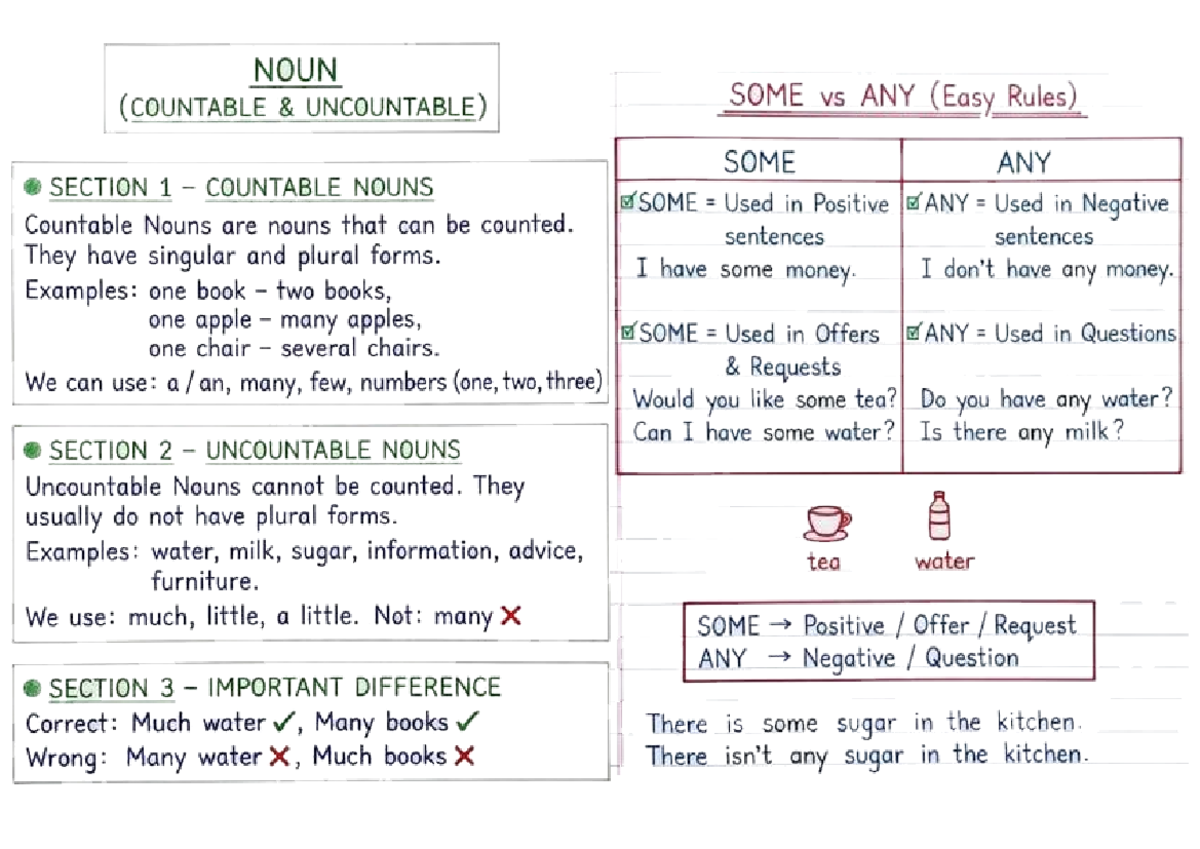 NOUN
(COUNTABLE & UNCOUNTABLE)
SECTION 1 – COUNTABLE NOUNS
Countable Nouns are nouns that can be counted.
They have singular and plural forms.
Examples: one book – two books,
one apple – many apples,
one chair – several chairs.
We can use: a / an, many, few, numbers (one, two, three)
SECTION 2 – UNCOUNTABLE NOUNS
Uncountable Nouns cannot be counted. They
usually do not have plural forms.
Examples: water, milk, sugar, information, advice,
furniture.
We use: much, little, a little. Not: many ❌
SECTION 3 – IMPORTANT DIFFERENCE
Correct: Much water ✓, Many books ✓
Wrong: Many water ❌, Much books ❌
SOME vs ANY (Easy Rules)
SOME
☑ SOME = Used in Positive
sentences
I have some money.
☑ SOME = Used in Offers
& Requests
Would you like some tea?
Can I have some water?
ANY
☑ ANY = Used in Negative
sentences
I don't have any money.
☑ ANY = Used in Questions
Do you have any water?
Is there any milk?
tea
water
SOME → Positive / Offer / Request
ANY → Negative / Question
There is some sugar in the kitchen.
There isn't any sugar in the kitchen.